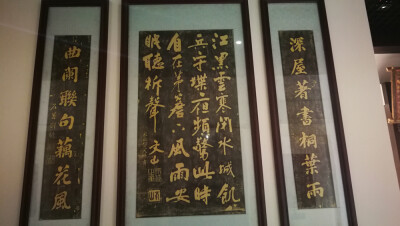 深屋著書桐葉雨
江黑雲寒閉水城飢
兵守堞夜頻驚此時
自在茅簷下風雨安
眠聽柝聲
曲闌聯句藕花風